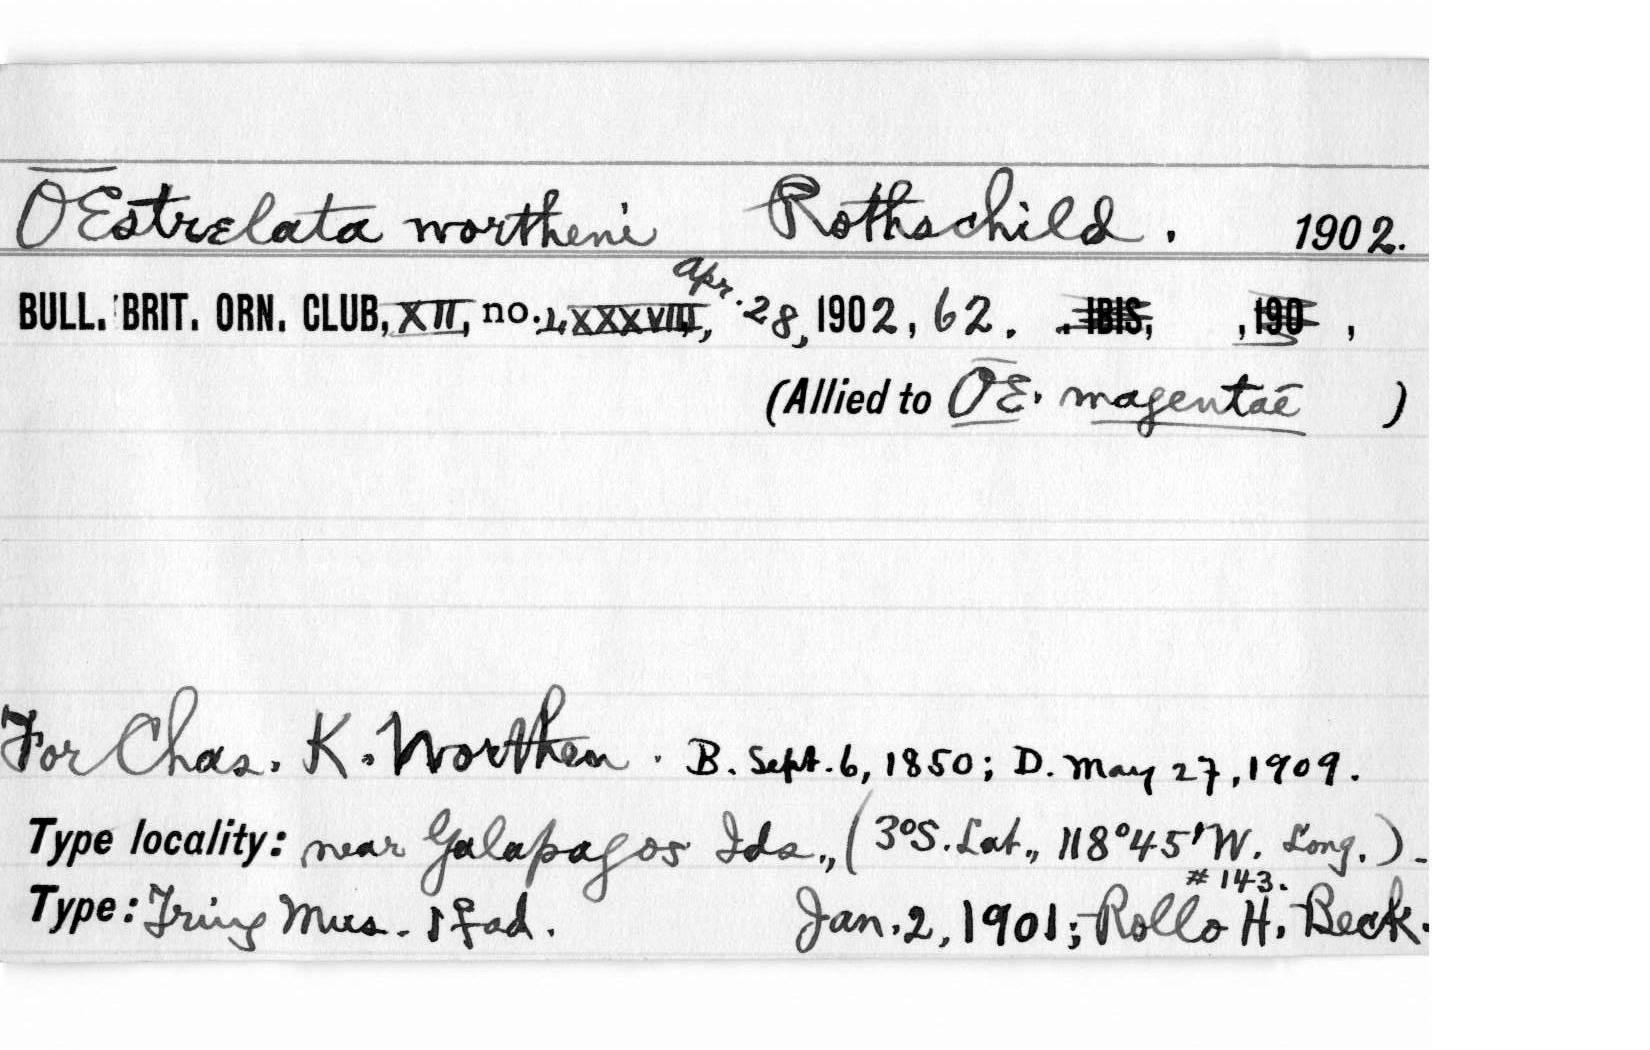 ŒEstrelata wortheni Rothschild. 1902.
BULL. BRIT. ORN. CLUB, XII, no. LXXXVIII, Apr. 28, 1902, 62. . IBIS, , 190 ,
(Allied to Œ. magentae )
For Chas. K. Worthen. B. Sept. 6, 1850; D. May 27, 1909.
Type locality: near Galapagos Ids., (3°S. Lat., 118°45'W. Long.).
#143.
Type: Tring Mus. 1 ♀ ad. Jan. 2, 1901; Rollo H. Beck.